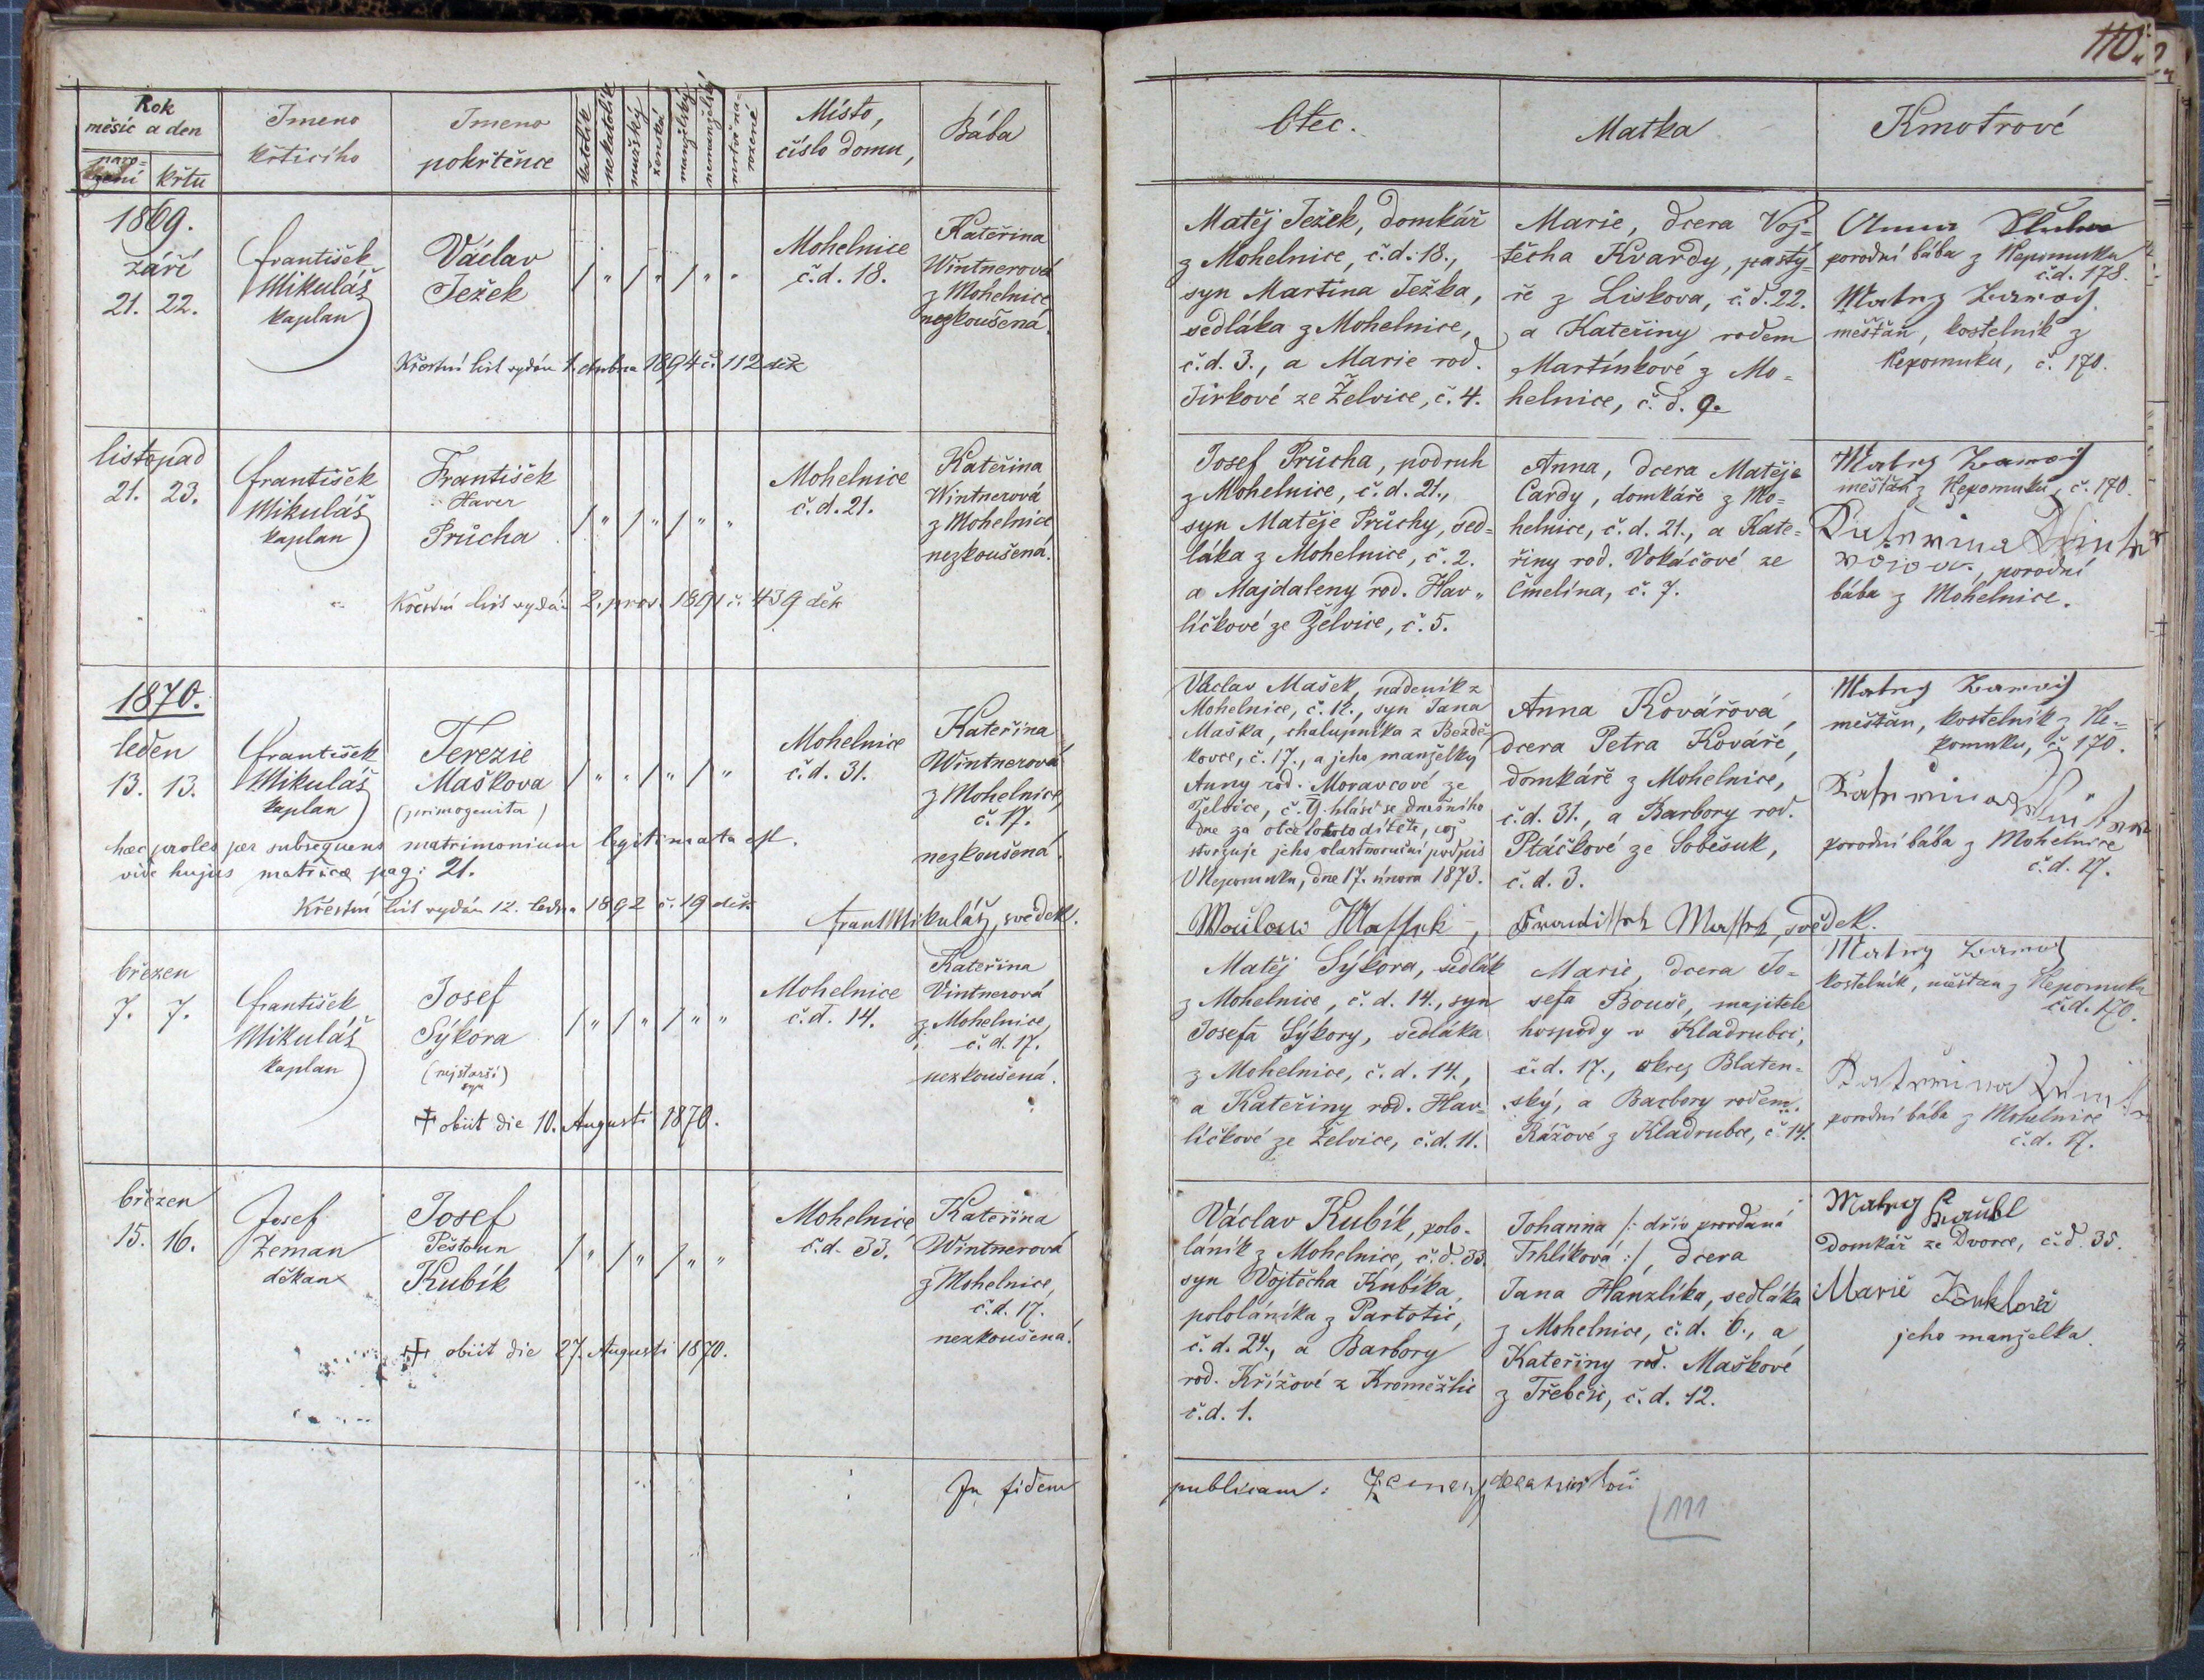 110.
Rok
měsíc a den
naro-
zení křtu
Jmeno
křticího
Jmeno
pokřtěnce
katolík
nekatolík
mužský
ženský
manželský
nemanželský
mrtvě na-
rozené
Místo,
číslo domu,
Bába
Otec.
Matka
Kmotrové
1869.
září
21. 22.
František
Mikuláš
kaplan
Václav
Ježek
/ " / " / " "
Mohelnice
č. d. 18.
Kateřina
Wintnerová
z Mohelnice
nezkoušená.
Křestní list vydán 1. dubna 1894 č. 112 děk
Matěj Ježek, domkář
z Mohelnice, č. d. 18.,
syn Martina Ježka,
sedláka z Mohelnice,
č. d. 3., a Marie rod.
Jírkové ze Želvice, č. 4.
Marie, dcera Voj-
těcha Kvardy, pastý-
ře z Liskova, č. d. 22.
a Kateřiny rodem
Martínkové z Mo-
helnice, č. d. 9.
Anna
porodní bába z Nepomuku
č. d. 178.
měšťan, kostelník z
Nepomuku, č. 170.
listopad
21. 23.
František
Mikuláš
kaplan
František
Xaver
Průcha
/ " / " / " "
Mohelnice
č. d. 21.
Kateřina
Wintnerová
z Mohelnice
nezkoušená.
Křestní list vydán 2. pros. 1891 č. 439 děk
Josef Průcha, podruh
z Mohelnice, č. d. 21.,
syn Matěje Průchy, sed-
láka z Mohelnice, č. 2.
a Majdaleny rod. Hav-
líčkové ze Želvice, č. 5.
Anna, dcera Matěje
Cardy, domkáře z Mo-
helnice, č. d. 21., a Kate-
řiny rod. Vokáčové ze
Čmelína, č. 7.
měšťan z Nepomuku, č. 170.
porodní
bába z Mohelnice.
1870.
leden
13. 13.
František
Mikuláš
kaplan
Terezie
Maškova
(primogenita)
/ " " / " / "
Mohelnice
č. d. 31.
Kateřina
Wintnerová
z Mohelnice,
č. 17.
nezkoušená.
hæc proles per subsequens matrimonium legitimata est.
vide hujus matricæ pag: 21.
Křestní list vydán 12. ledna 1892 č. 19 děk
Václav Mašek, nádeník z
Mohelnice, č. 12., syn Jana
Maška, chalupníka z Bezdě-
kovce, č. 17., a jeho manželky
Anny rod. Moravcové ze
Želvice, č. 9. hlásil se dnešního
dne za otce tohoto dítěte, což
stvrzuje jeho vlastnoruční podpis
V Nepomuku, dne 17. února 1873.
Anna Kovářová,
dcera Petra Kováře,
domkáře z Mohelnice,
č. d. 31., a Barbory rod.
Ptáčkové ze Soběsuk,
č. d. 3.
měšťan, kostelník z Ne-
pomuku, č. 170.
porodní bába z Mohelnice
č. d. 17.
Frant Mikuláš, svědek.
svědek.
březen
7. 7.
František
Mikuláš
kaplan
Josef
Sýkora
(nejstarší)
syn
/ " / " / " "
Mohelnice
č. d. 14.
Kateřina
Vintnerová
z Mohelnice,
č. d. 17.
nezkoušená.
† obiit die 10. Augusti 1870.
Matěj Sýkora, sedlák
z Mohelnice, č. d. 14., syn
Josefa Sýkory, sedláka
z Mohelnice, č. d. 14.,
a Kateřiny rod. Hav-
líčkové ze Želvice, č. d. 11.
Marie, dcera Jo-
sefa Bouše, majitele
hospody v Kladrubci,
č. d. 17., okres Blaten-
ský, a Barbory rodem.
Rážové z Kladrubce, č. 14.
kostelník, měšťan z Nepomuku
č. d. 170.
porodní bába z Mohelnice
č. d. 17.
březen
15. 16.
Josef
Zeman
děkan
Josef
Pěstoun
Kubík
/ " / " / " "
Mohelnice
č. d. 33.
Kateřina
Wintnerová
z Mohelnice,
č. d. 17.
nezkoušená.
†† obiit die 27. Augusti 1870.
Václav Kubík, polo-
láník z Mohelnice, č. d. 33.
syn Vojtěcha Kubíka,
pololáníka z Partotic,
č. d. 24., a Barbory
rod. Křížové z Kroměžlic
č. d. 1.
Johanna /: dřív provdaná
Trhlíková :/, dcera
Jana Hanzlíka, sedláka
z Mohelnice, č. d. 6., a
Kateřiny rod. Maškové
z Třebčic, č. d. 12.
domkář ze Dvorce, č. d. 35.
Marie
jeho manželka.
In fidem
publicam: Zeman
111